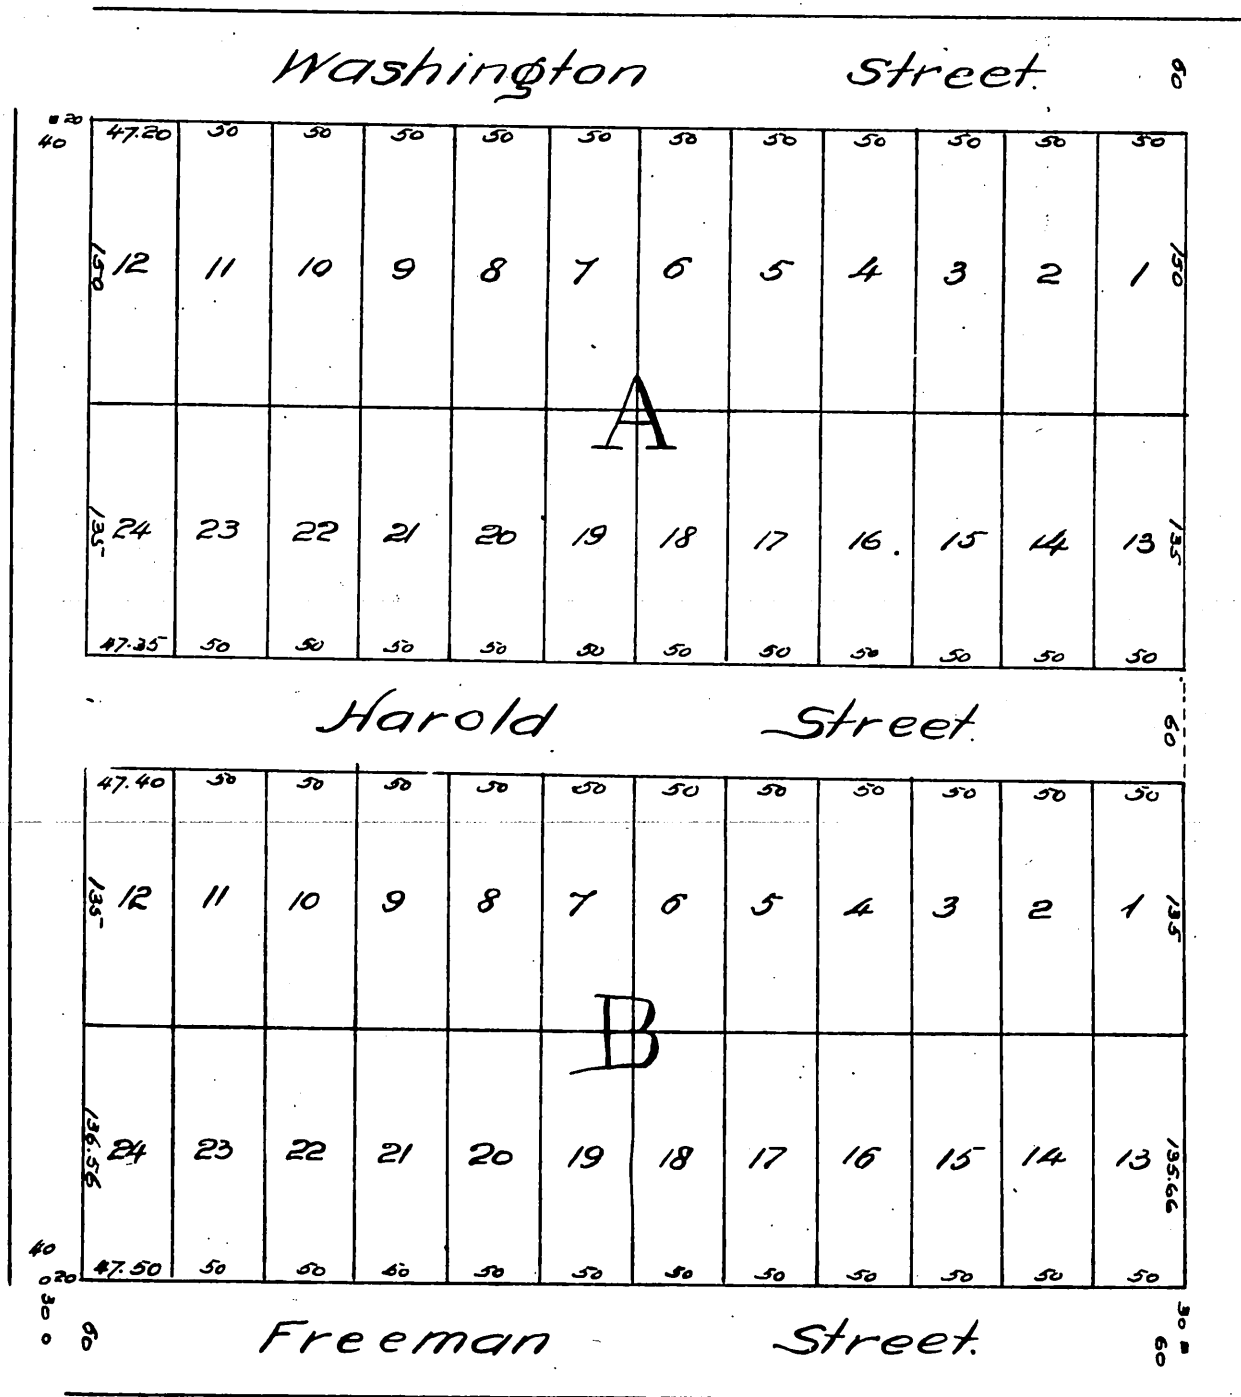 Washington Street. 60
20
40 47.20 50 50 50 50 50 50 50 50 50 50 50
150 12 11 10 9 8 7 6 5 4 3 2 1 150
A
135 24 23 22 21 20 19 18 17 16. 15 14 13 135
47.35 50 50 50 50 50 50 50 50 50 50 50
Harold Street. 60
47.40 50 50 50 50 50 50 50 50 50 50 50
135 12 11 10 9 8 7 6 5 4 3 2 1 135
B
136.56 24 23 22 21 20 19 18 17 16 15 14 13 135.66
40
20 47.50 50 50 50 50 50 50 50 50 50 50 50
30 60 Freeman Street. 30 60